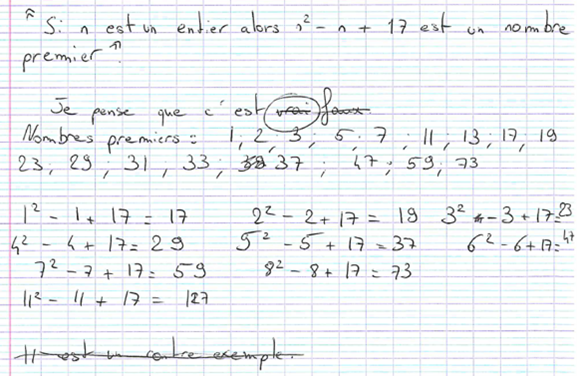 " Si n est un entier alors n² - n + 17 est un nombre
premier ".
Je pense que c'est vrai faux.
Nombres premiers : 1, 2, 3 ; 5 ; 7 ; 11 ; 13, 17, 19
23 ; 29 ; 31 ; 33 ; 37 ; 47 ; 59, 73
1² - 1 + 17 = 17 2² - 2 + 17 = 19 3² - 3 + 17 = 23
4² - 4 + 17 = 29 5² - 5 + 17 = 37 6² - 6 + 17 = 47
7² - 7 + 17 = 59 8² - 8 + 17 = 73
11² - 11 + 17 = 127
11 est un contre exemple.